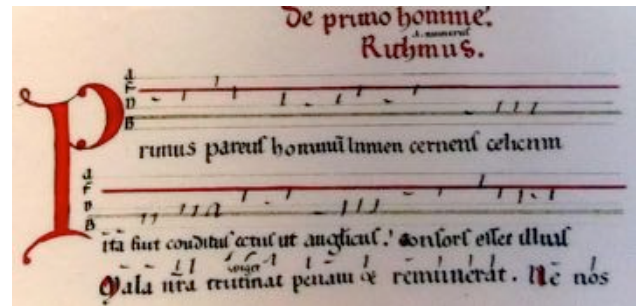 De primo homine.
Rithmus.
Primus parens hominū lumen cernens celicum
ita fuit conditus cetus ut anglicus. Consors esset illius
Mala nr̄a trutinat penam & remunerat. Ne nos